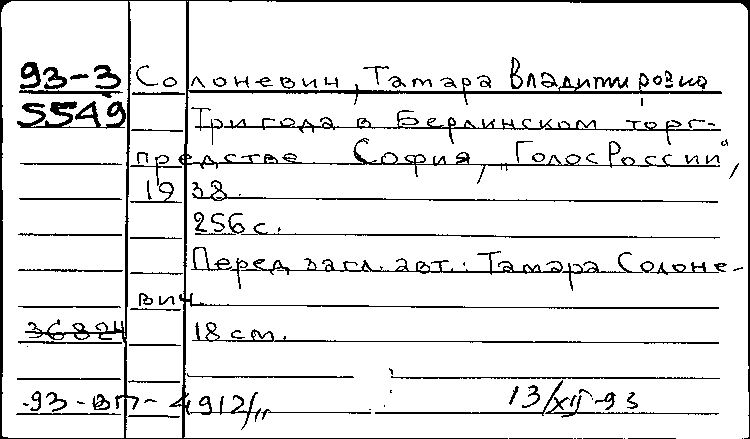 93-3 Солоневич, Тамара Владимировна
5549 Три года в Берлинском торг-
предстве. София, "Голос России",
1938.
256 с.
Перед загл. авт.: Тамара Солоне-
вич.
36824 18 cm.
93-ВП-4912/" 13/XII-93